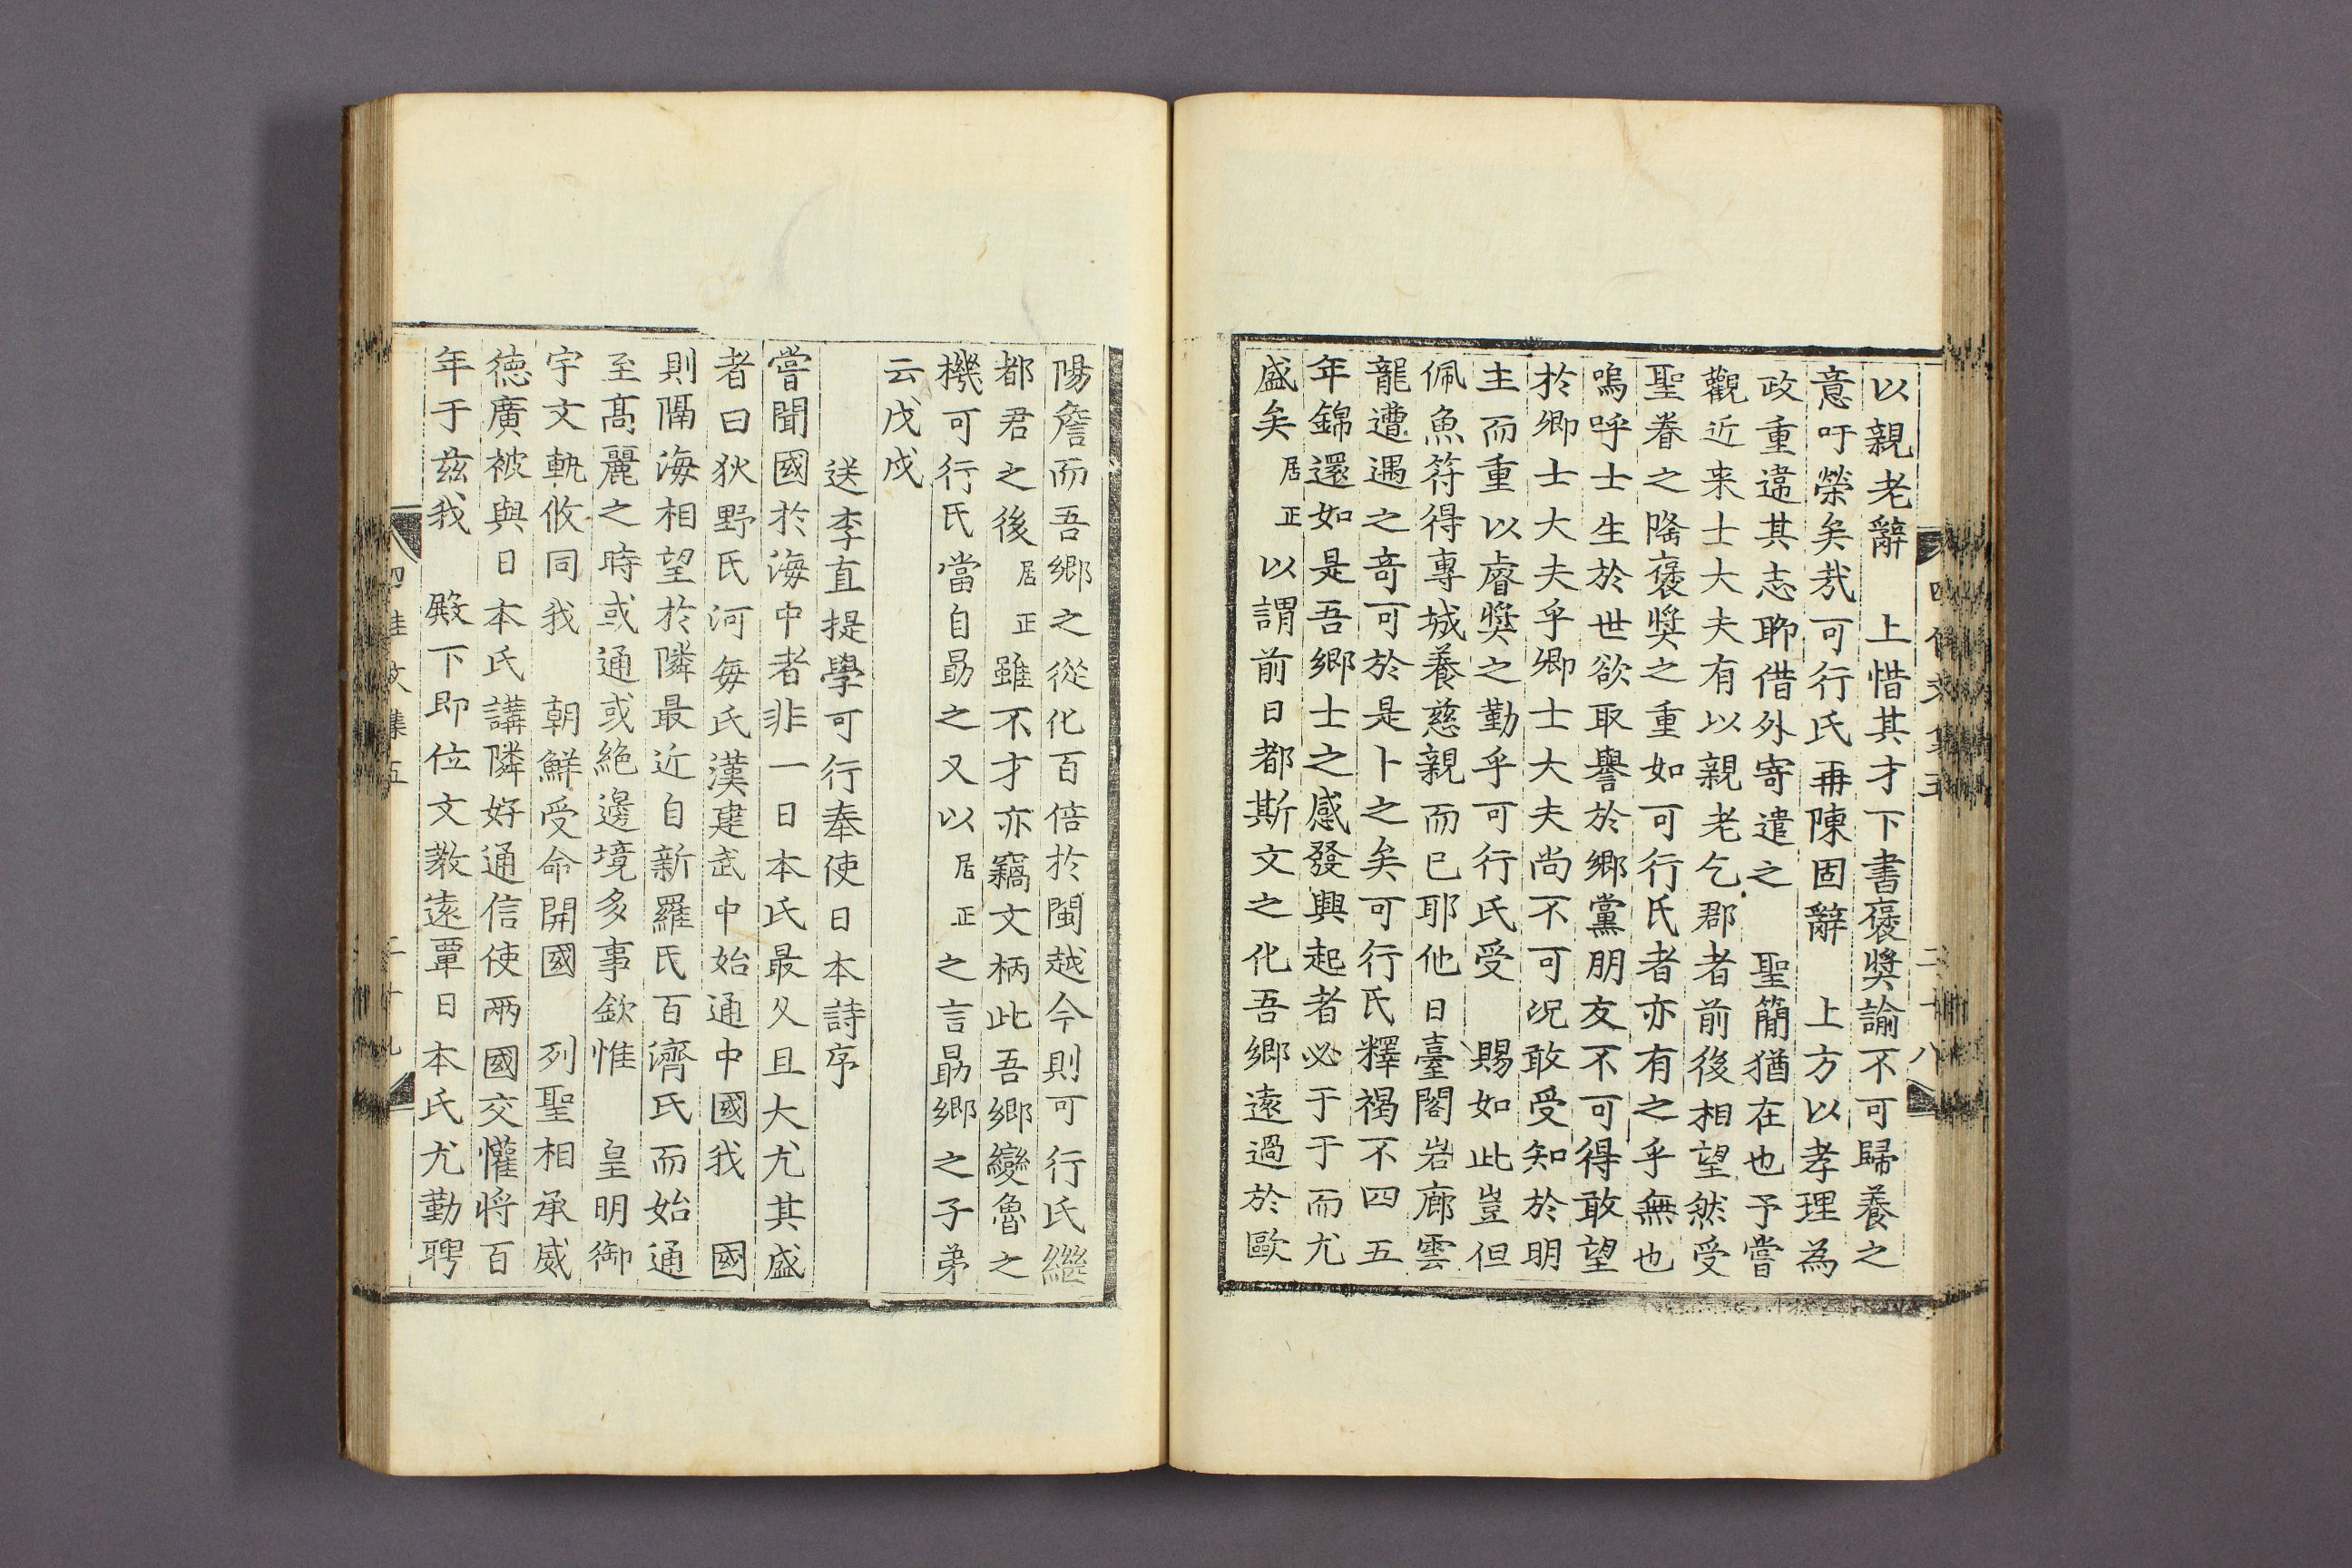 以親老辭　上惜其才下書褒奬諭不可歸養之
意吁榮矣㢤可行氏再陳固辭　上方以孝理為
政重違其志聊借外寄遣之　聖簡猶在也予嘗
觀近来士大夫有以親老乞郡者前後相望然受
聖眷之隆褒奬之重如可行氏者亦有之乎無也
嗚呼士生於世欲取譽於鄉黨朋友不可得敢望
於卿士大夫乎卿士大夫尚不可况敢受知於明
主而重以睿奬之勤乎可行氏受　賜如此豈但
佩魚符得專城養慈親而已耶他日臺閣岩廊雲
龍遭遇之竒可於是卜之矣可行氏釋褐不四五
年錦還如是吾鄉士之感發興起者必于于而尤
盛矣居正以謂前日都斯文之化吾鄉遠過於歐
四佳文集五　二十八
陽詹而吾鄉之從化百倍於閩越今則可行氏繼
都君之後居正雖不才亦竊文柄此吾鄉變魯之
機可行氏當自勖之又以居正之言勖鄉之子弟
云戊戌
送李直提學可行奉使日本詩序
嘗聞國於海中者非一日本氏最久且大尤其盛
者曰狄野氏河每氏漢建武中始通中國我　國
則隔海相望於隣最近自新羅氏百濟氏而始通
至髙麗之時或通或絶邊境多事欽惟　皇明御
宇文軌攸同我　朝鮮受命開國　列聖相承威
德廣被與日本氏講隣好通信使兩國交懽将百
年于兹我　殿下即位文教遠覃日本氏尤勤聘
四佳文集五　二十九